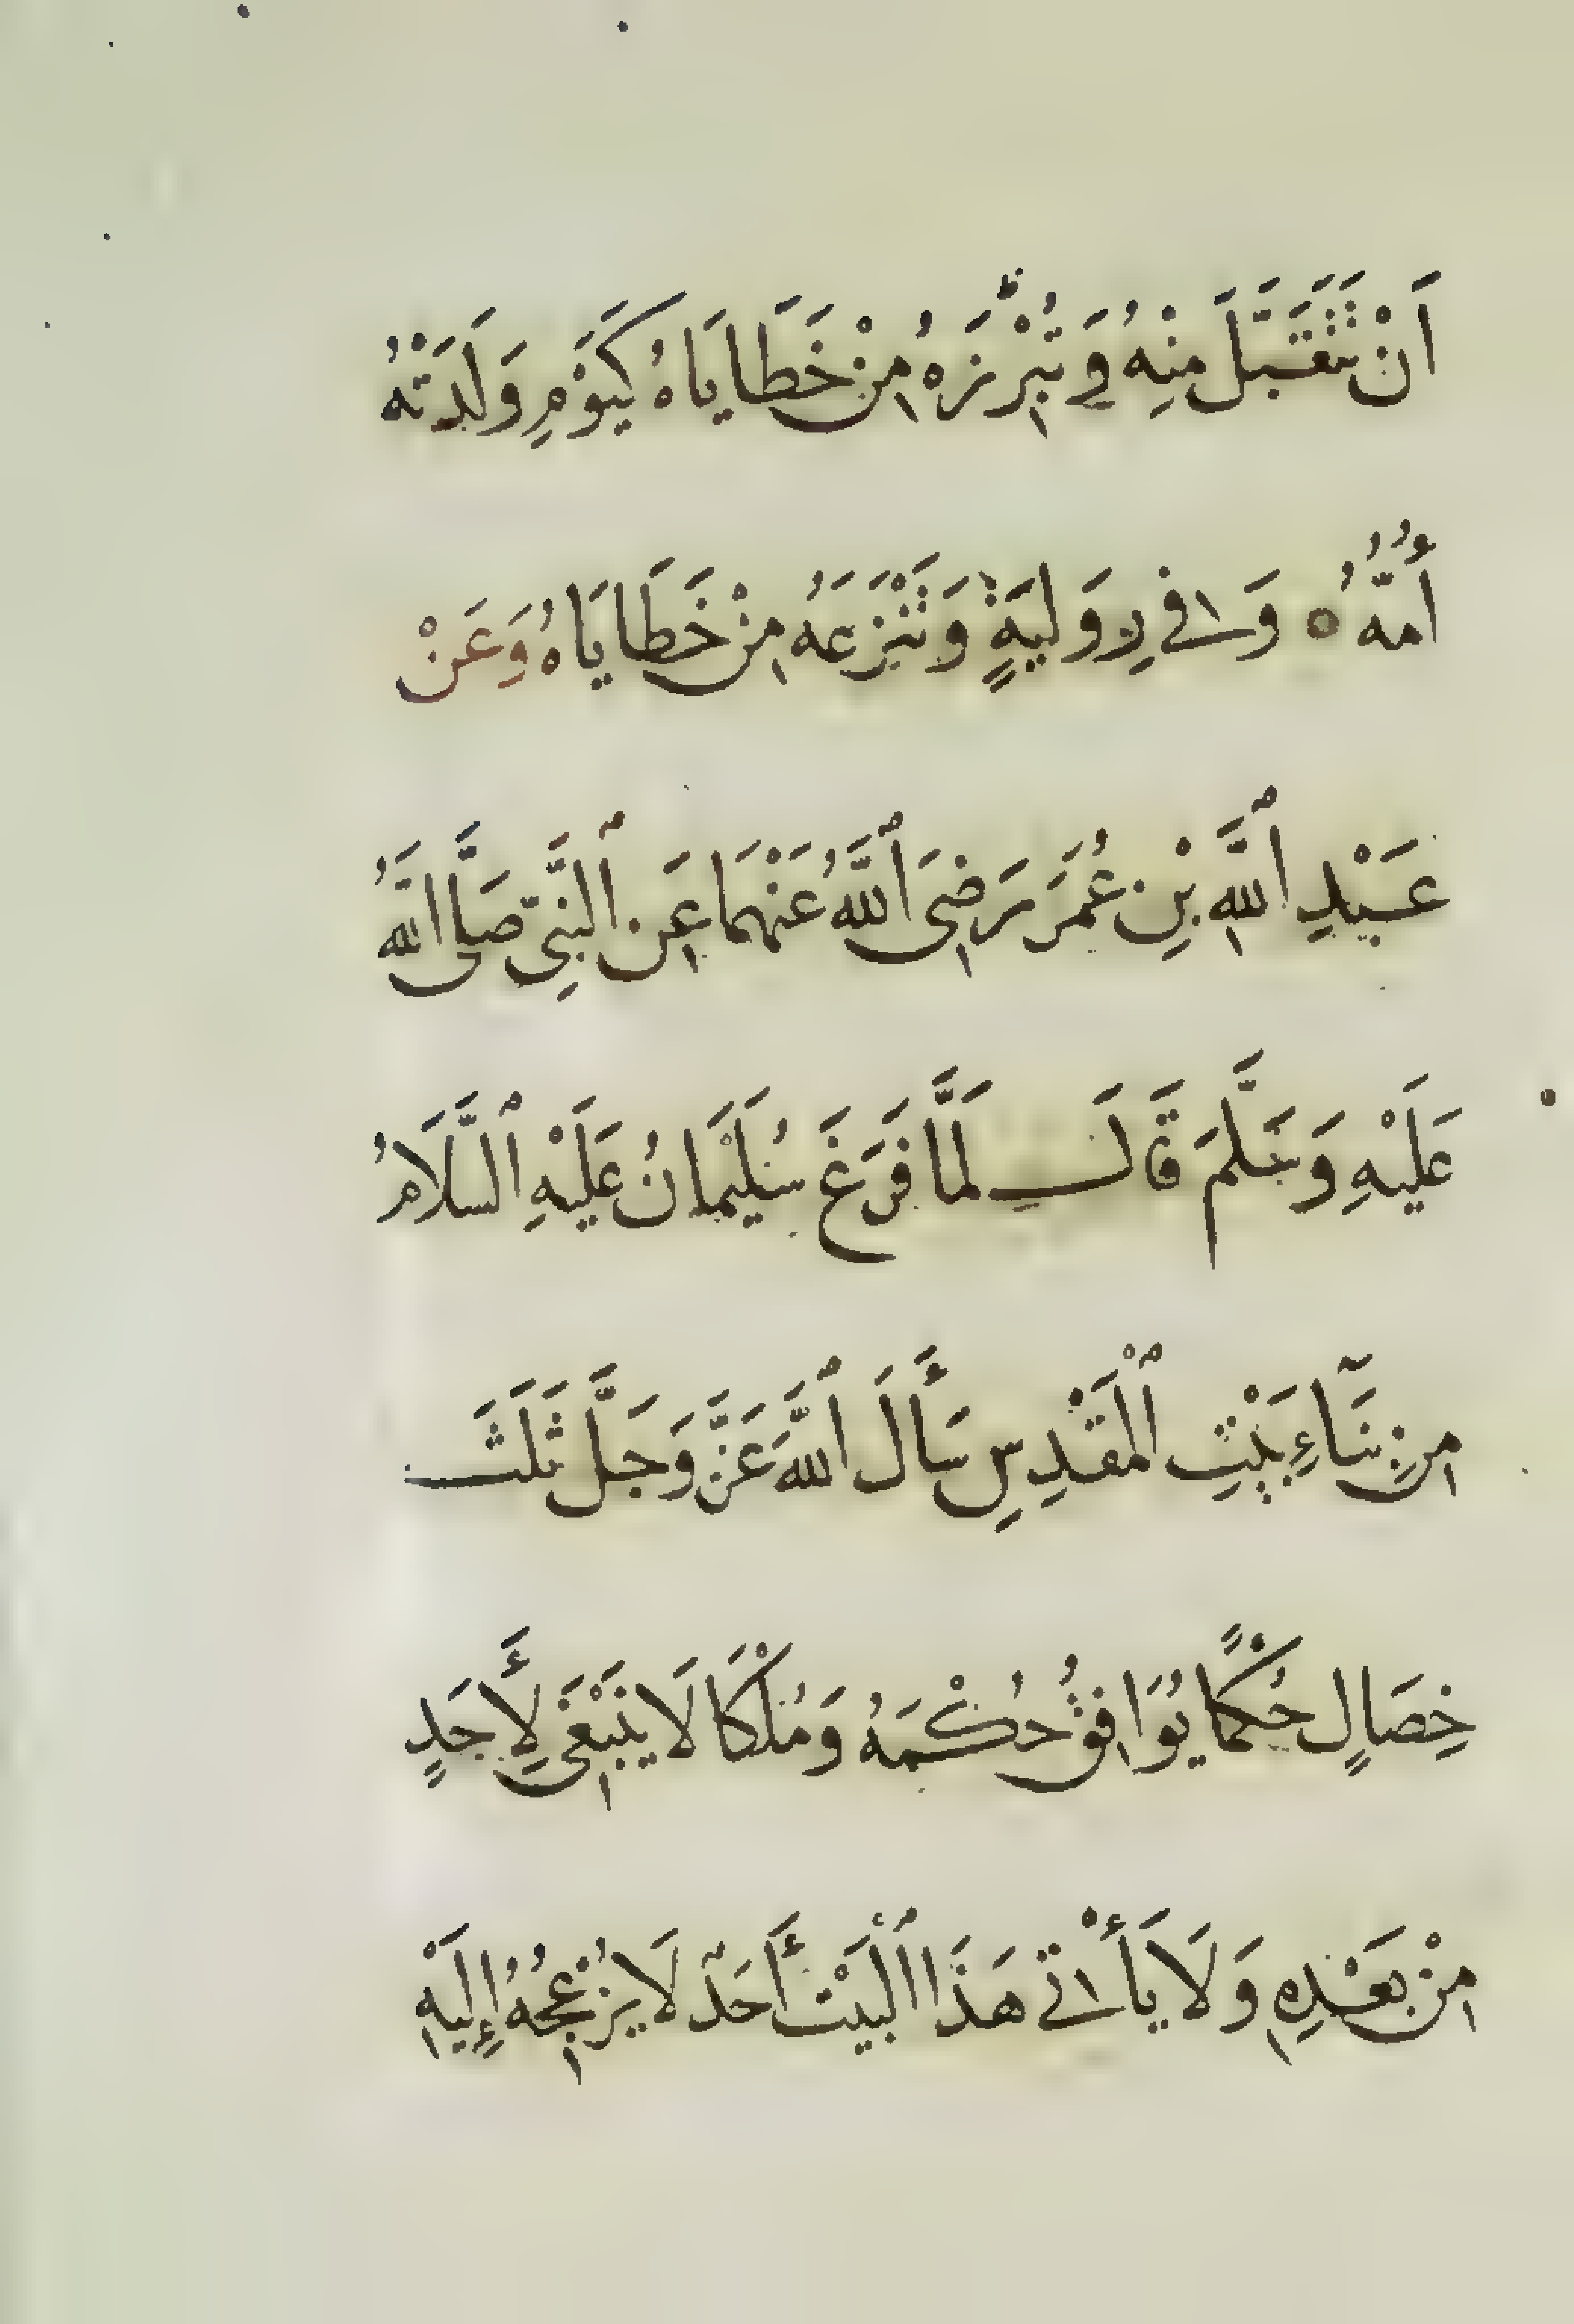 اَنْ تَتَقَبَّلَ مِنْهُ وَتُبْرِزَهُ مِنْ خَطَايَاهُ كَيَوْمِ وَلَدَتْهُ
أُمُّهُ ۝ وَفِي رِوَايَةٍ وَتَنْزِعَهُ مِنْ خَطَايَاهُ وَعَنْ
عَبْدِ ٱللَّهِ بْنِ عُمَرَ رَضِيَ ٱللَّهُ عَنْهُمَا عَنِ ٱلنَّبِيِّ صَلَّى اللَّهُ
عَلَيْهِ وَسَلَّمَ قَالَ لَمَّا فَرَغَ سُلَيْمَانُ عَلَيْهِ ٱلسَّلَامُ
مِنْ بِنَآءِ بَيْتِ ٱلْمَقْدِسِ سَأَلَ ٱللَّهَ عَزَّ وَجَلَّ ثَلَثَ
خِصَالٍ حُكْمًا يُوَافِقُ حُكْمَهُ وَمُلْكًا لَا يَنْبَغِي لِأَحَدٍ
مِنْ بَعْدِهِ وَلَا يَأْتِي هَذَا ٱلْبَيْتَ أَحَدٌ لَا يُزْعِجُهُ إِلَيْهِ